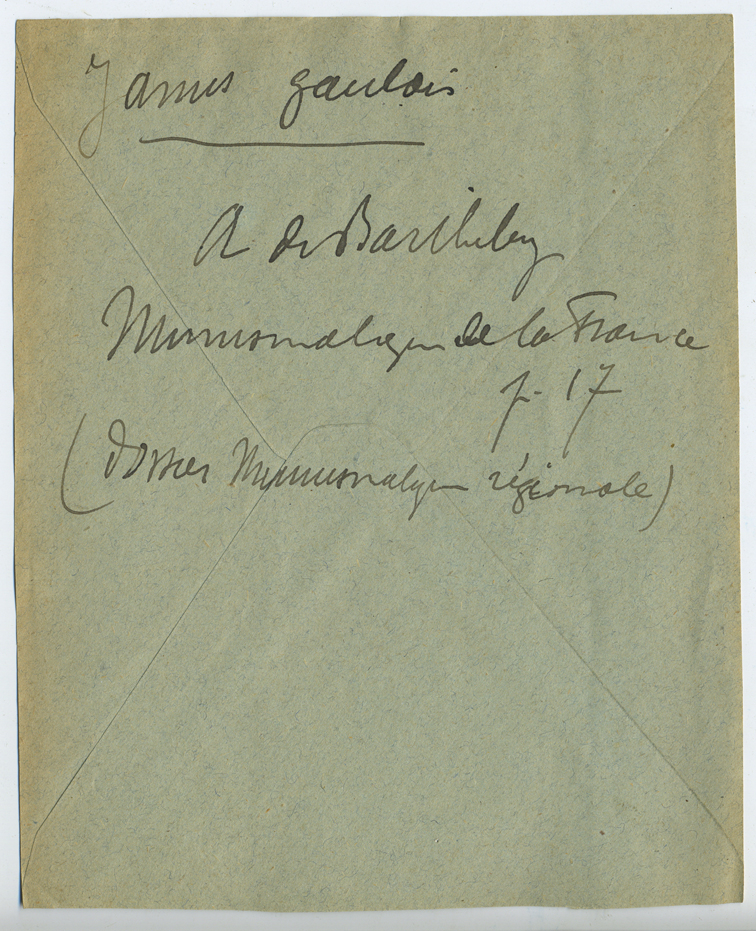 Janus gaulois
A de Barthelemy
Numismatique de la France
p. 17
(dossier Numismatique régionale)